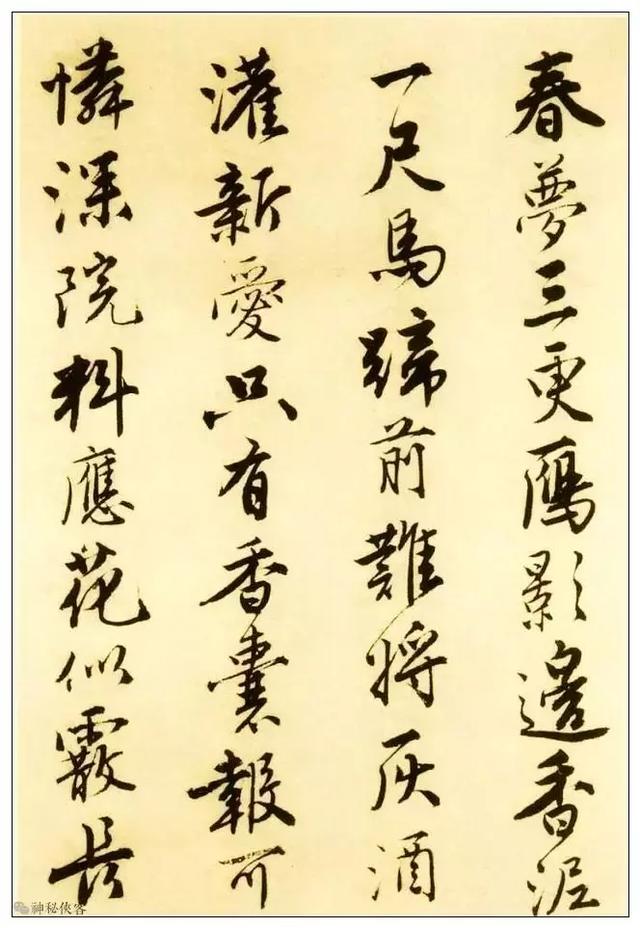 春夢三更鴈影邊香泥
一尺馬蹄前難將灰酒
灌新愛只有香囊報可
憐深院料應花似霰長
神秘俠客